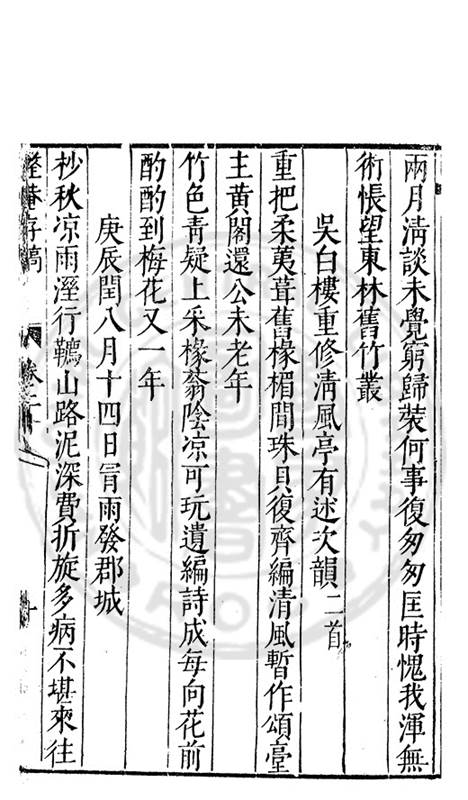 兩月淸談未覺窮歸裝何事復匆匆匡時愧我渾無
術悵望東林舊竹叢
吳白樓重修淸風亭有述次韻二首
重把柔荑葺舊椽楣間珠貝復齊編清風暫作頌臺
主黃閣還公未老年
竹色靑疑上采椽蓊陰凉可玩遺編詩成每向花前
酌酌到梅花又一年
庚辰閏八月十四日冒雨發郡城
杪秋凉雨溼行韉山路泥深費折旋多病不堪來往
存稿
卷二